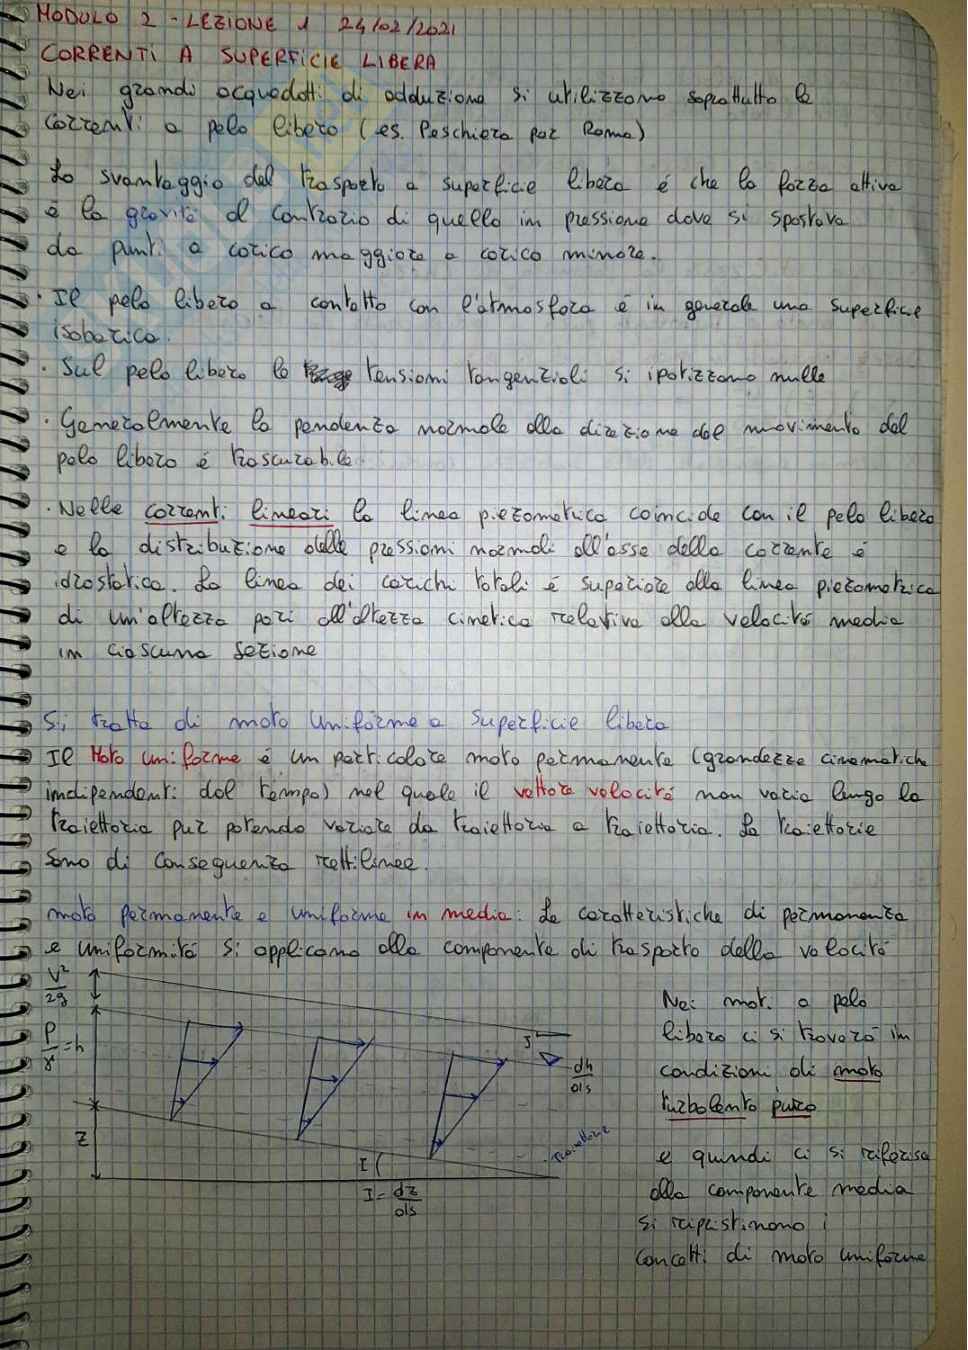 MODULO 2 - LEZIONE 1 24/02/2021
CORRENTI A SUPERFICIE LIBERA
Nei grandi acquedotti di adduzione si utilizzano soprattutto le
correnti a pelo libero (es. Peschiera per Roma)
Lo svantaggio del trasporto a superficie libera é che la forza attiva
é la gravità al contrario di quello in pressione dove si spostava
da punti a carico maggiore a carico minore.
· Il pelo libero a contatto con l'atmosfera é in generale una superficie
isobarica.
· Sul pelo libero le tensioni tangenziali si ipotizzano nulle
· Generalmente la pendenza normale alla direzione del movimento del
pelo libero é trascurabile
· Nelle correnti lineari la linea piezometrica coincide con il pelo libero
e la distribuzione delle pressioni normali all'asse della corrente é
idrostatica. La linea dei carichi totali é superiore alla linea piezometrica
di un'altezza pari all'altezza cinetica relativa alla velocitá media
in ciascuna sezione
Si tratta di moto uniforme a superficie libera
Il Moto uniforme é un particolare moto permanente (grandezze cinematiche
indipendenti dal tempo) nel quale il vettore velocitá non varia lungo la
traiettoria pur potendo variare da traiettoria a traiettoria. Le traiettorie
sono di conseguenza rettilinee.
moto permanente e uniforme in media: Le caratteristiche di permanenza
e uniformitá si applicano alla componente di trasporto della velocitá
V²/2g
P/γ = h
z
J
dh/ds
traiettorie
I
I = dz/ds
Nei moti a pelo
libero ci si troverá in
condizioni di moto
turbolento puro
e quindi ci si riferisce
alla componente media
si ripristinano i
concetti di moto uniforme